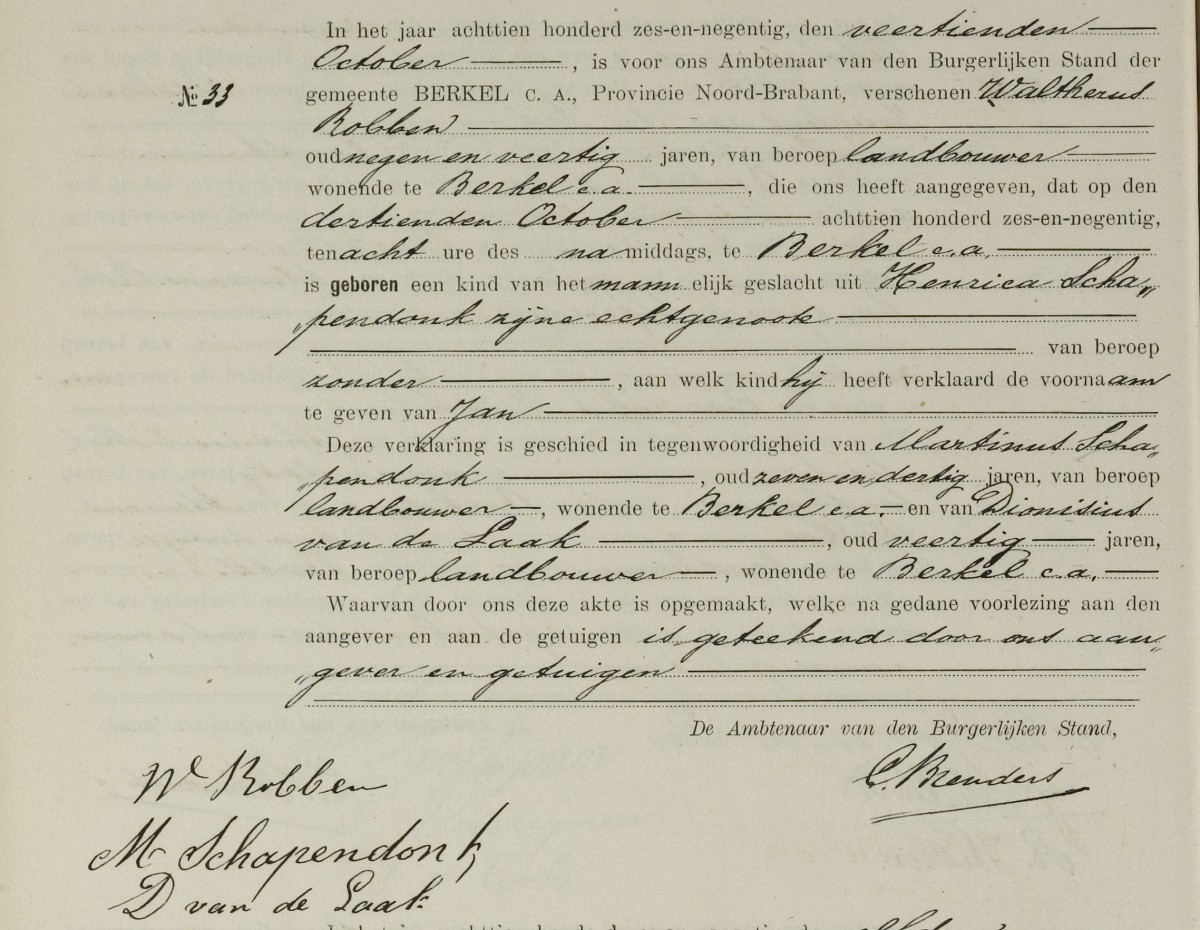 In het jaar achttien honderd zes-en-negentig, den veertienden
October, is voor ons Ambtenaar van den Burgerlijken Stand der
№ 33
gemeente BERKEL C. A., Provincie Noord-Brabant, verschenen Waltherus
Robben
oud negen en veertig jaren, van beroep landbouwer
wonende te Berkel c.a., die ons heeft aangegeven, dat op den
dertienden October achttien honderd zes-en-negentig,
ten acht ure des na middags, te Berkel c.a.
is geboren een kind van het mannelijk geslacht uit Henrica Scha„
„pendonk zijne echtgenoote
van beroep
zonder, aan welk kind hij heeft verklaard de voornaam
te geven van Jan
Deze verklaring is geschied in tegenwoordigheid van Martinus Scha„
„pendonk, oud zeven en dertig jaren, van beroep
landbouwer, wonende te Berkel c.a. en van Dionisius
van de Laak, oud veertig jaren,
van beroep landbouwer, wonende te Berkel c.a.
Waarvan door ons deze akte is opgemaakt, welke na gedane voorlezing aan den
aangever en aan de getuigen is geteekend door ons aan„
„gever en getuigen
De Ambtenaar van den Burgerlijken Stand,
W Robben
C. Brenders
M Schapendonk
D van de Laak